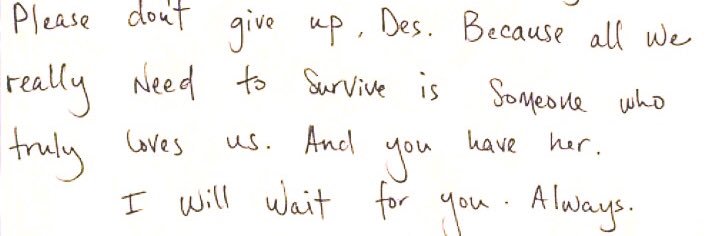 Please don't give up, Des. Because all we
really need to survive is someone who
truly loves us. And you have her.
I will wait for you. Always.